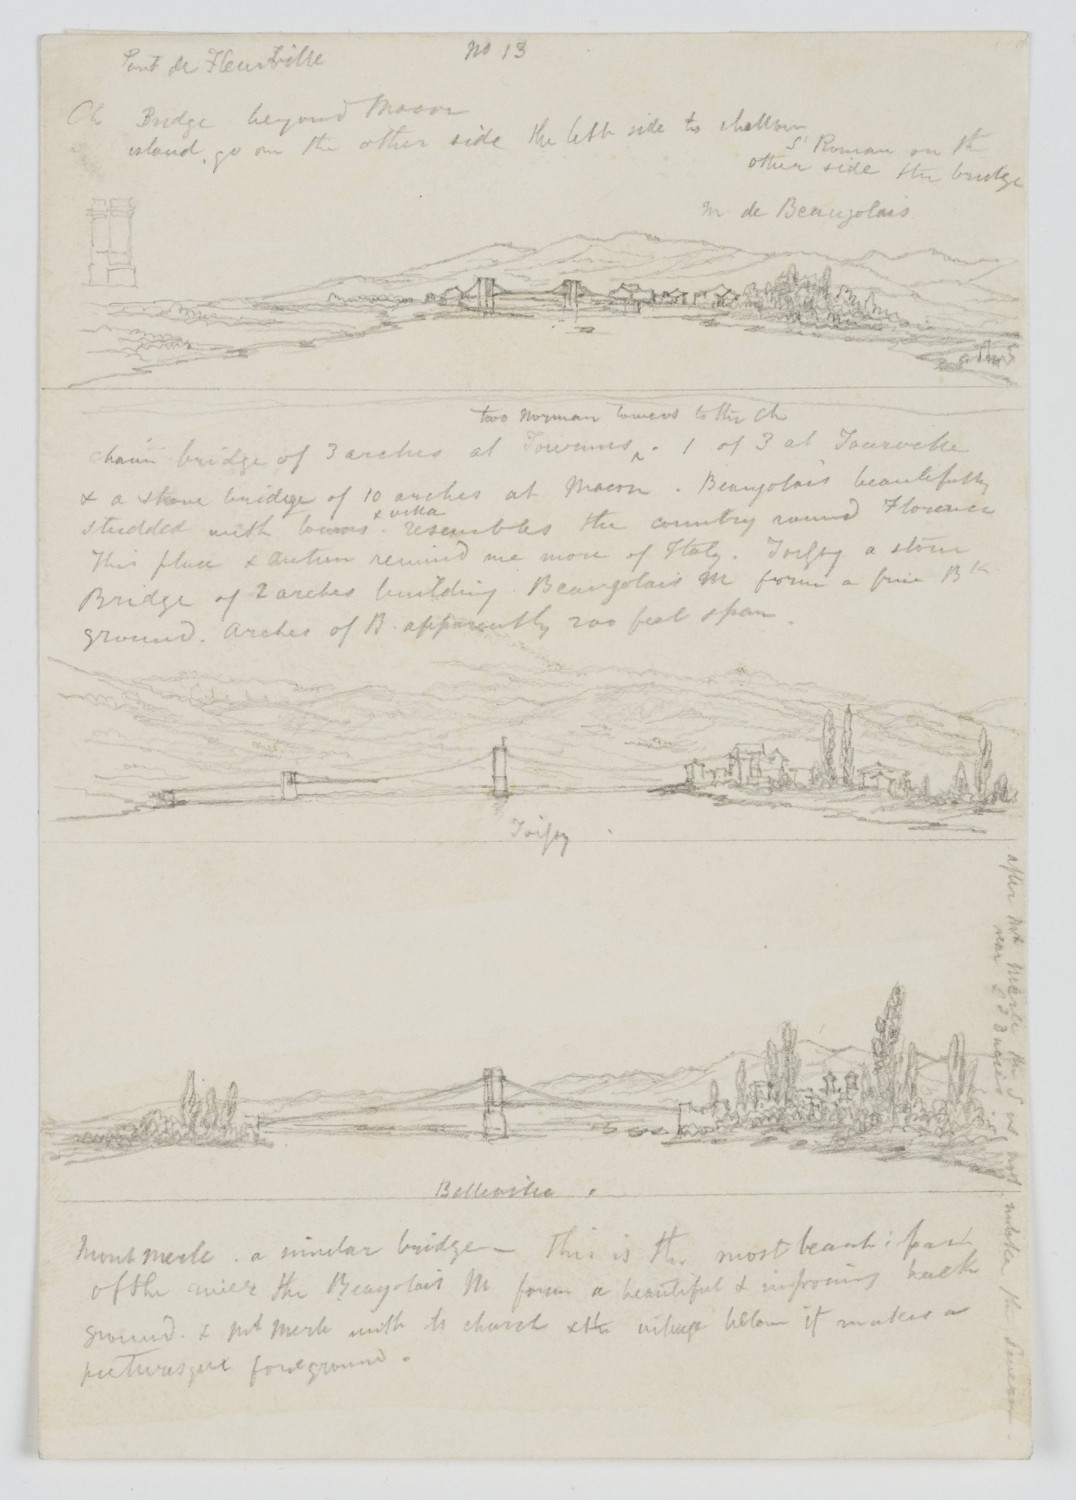 Pont de Fleurville
No 13
Ch Bridge beyond Macon
island, go on the other side the left side to shallow
St Roman on the
other side the bridge
M de Beaugolais
two Norman towers to the Ch
chain bridge of 3 arches at Tournus. 1 of 3 at
& a stone bridge of 10 arches at Macon. Beaugolais beautifully
& villa
studded with towns. resembles the country round Florence
This place & Autun remind me more of Italy. Toissy a stone
Bridge of 2 arches building. Beaugolais M form a fine Bk
ground. Arches of B. apparently 200 feet span.
Toissy
Belleville.
Mont merle. a similar bridge – This is the most beauti: part
of the river the Beaugolais M form a beautiful & imposing back
ground. & Mt Merle with its church & the village below it makes a
picturesque foreground.
after Mt Merle the S is not unlike the Severn.
near